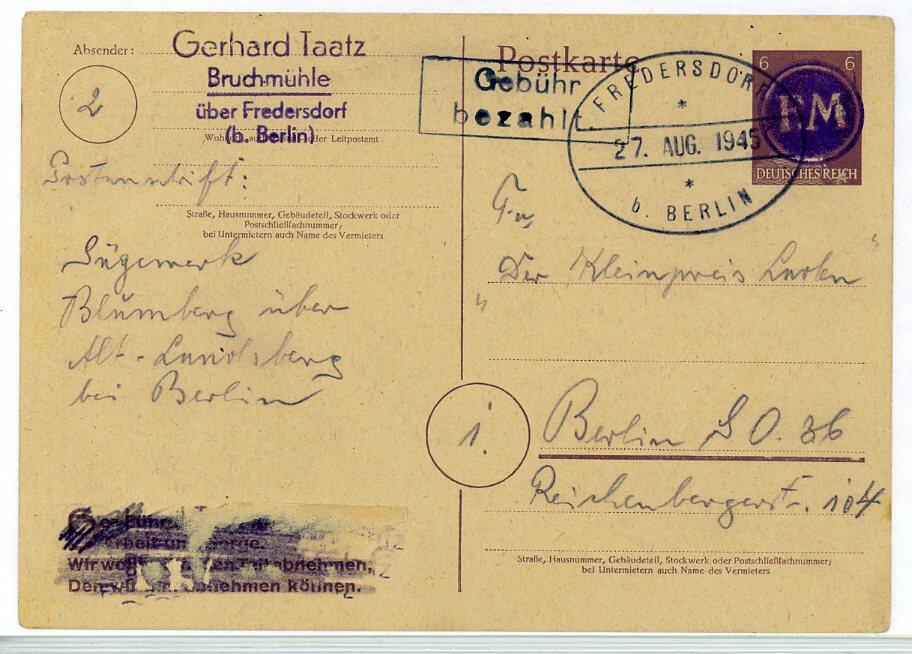 Absender:
Gerhard Taatz
Bruchmühle
über Fredersdorf
(b. Berlin)
Wohnort, auch Zustell- oder Leitpostamt
2
Postanschrift:
Straße, Hausnummer, Gebäudeteil, Stockwerk oder
Postschließfachnummer;
bei Untermietern auch Name des Vermieters
Sägewerk
Blumberg über
Alt-Landsberg
bei Berlin
Führ
arbeit un
orge.
Wir wol
abnehmen,
abnehmen können.
Postkarte
Gebühr
bezahlt
FREDERSDORF
27. AUG. 1945
b. BERLIN
6 6
FM
DEUTSCHES REICH
Fa,
„Der Kleinpreis Laden“
1.
Berlin S O. 36
Reichenbergerst. 104
Straße, Hausnummer, Gebäudeteil, Stockwerk oder Postschließfachnummer;
bei Untermietern auch Name des Vermieters